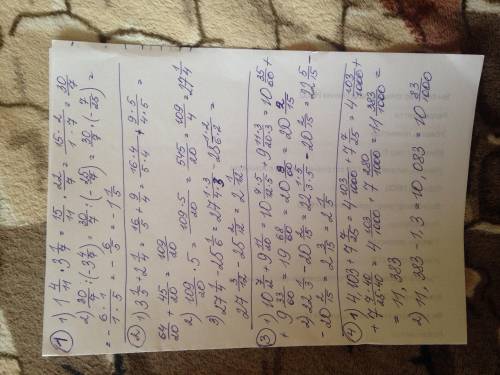 ① 1) 1 4/11 · 3 1/7 = 15/11 · 22/7 = 15·2/1·7 = 30/7
2) 30/7 : (-3 4/7) = 30/7 : (-25/7) = 30/7 · (-7/25) =
= - 6·1/1·5 = - 6/5 = -1 1/5
② 1) 3 1/5 + 2 1/4 = 16/5 + 9/4 = 16·4/5·4 + 9·5/4·5 =
64/20 + 45/20 = 109/20
2) 109/20 · 5 = 109·5/20 = 545/20 = 109/4 = 27 1/4
3) 27 1/4 - 25 1/6 = 27 1·3/4·3 - 25 1·2/6·2 =
27 3/12 - 25 2/12 = 2 1/12.
③ 1) 10 7/12 + 9 11/20 = 10 7·5/12·5 + 9 11·3/20·3 = 10 35/60 +
+ 9 33/60 = 19 68/60 = 20 8/60 = 20 2/15
2) 22 1/3 - 20 2/15 = 22 1·5/3·5 - 20 2/15 = 22 5/15 -
- 20 2/15 = 2 3/15 = 2 1/5
④ 1) 4,103 + 7 7/25 = 4 103/1000 + 7 7/25 = 4 103/1000 +
+ 7 7·40/25·40 = 4 103/1000 + 7 280/1000 = 11 383/1000 =
= 11,383
2) 11,383 - 1,3 = 10,083 = 10 83/1000